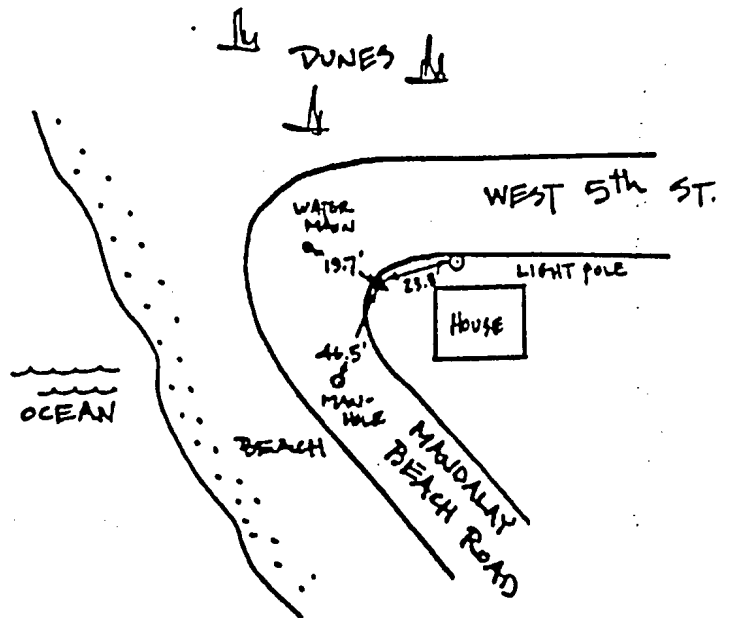 DUNES
WEST 5th ST.
WATER
MAIN
19.7'
LIGHT POLE
HOUSE
46.5'
MAN-
HOLE
OCEAN
BEACH
MANDALAY
BEACH ROAD